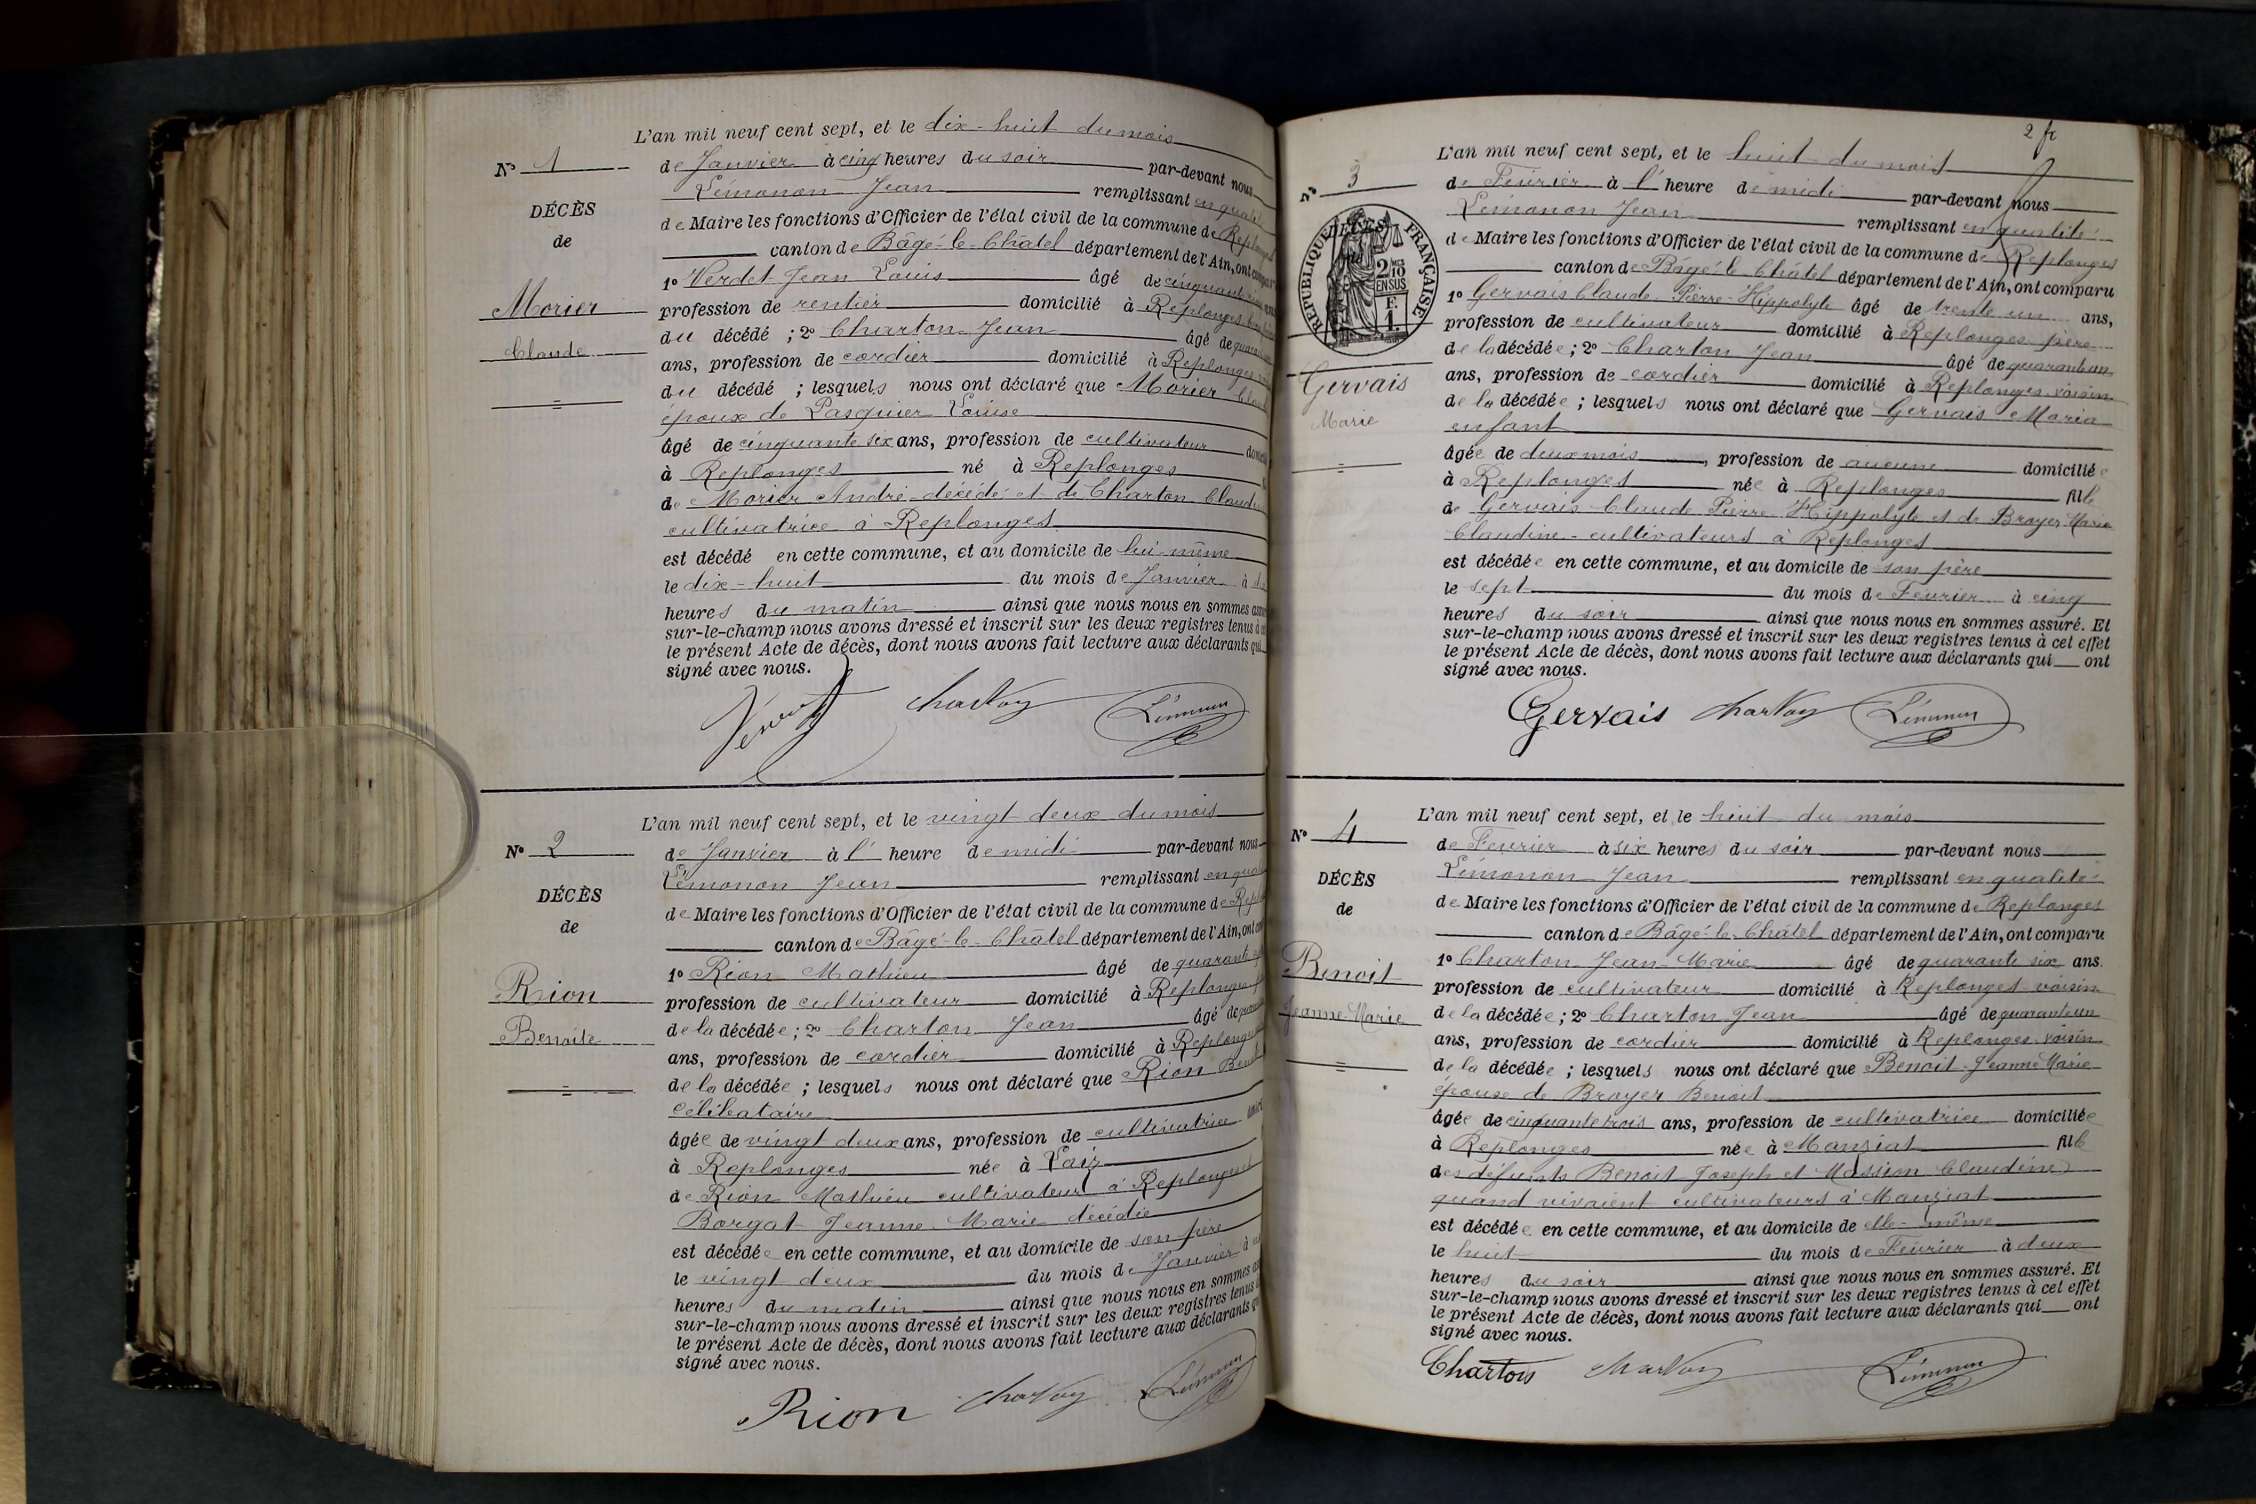 L'an mil neuf cent sept, et le dix-huit du mois
N° 1
de Janvier à cinq heures du soir par-devant nous
Lémonon Jean remplissant en qualité
DÉCÈS
de Maire les fonctions d'Officier de l'état civil de la commune de Replonges
de
canton de Bâgé-le-Châtel département de l'Ain, ont comparu
1° Verdet Jean Louis âgé de cinquante
Morier
profession de rentier domicilié à Replonges
du décédé ; 2° Charton Jean âgé de
Claude
ans, profession de cordier domicilié à Replonges
du décédé ; lesquels nous ont déclaré que Morier
époux de Pasquier Louise
âgé de cinquante six ans, profession de cultivateur
à Replonges né à Replonges
de Morier André décédé et de Charton
cultivatrice à Replonges
est décédé en cette commune, et au domicile de lui-même
le dix-huit du mois de Janvier à
heures du matin ainsi que nous nous en sommes
sur-le-champ nous avons dressé et inscrit sur les deux registres tenus à
le présent Acte de décès, dont nous avons fait lecture aux déclarants qui
signé avec nous.
L'an mil neuf cent sept, et le vingt deux du mois
N° 2
de Janvier à l'heure de midi par-devant nous
Lémonon Jean remplissant en
DÉCÈS
de Maire les fonctions d'Officier de l'état civil de la commune de
de
canton de Bâgé-le-Châtel département de l'Ain, ont
1° Rion Mathieu âgé de quarante
Rion
profession de cultivateur domicilié à Replonges
de la décédée ; 2° Charton Jean âgé de
Benoite
ans, profession de cordier domicilié à Replonges
de la décédée ; lesquels nous ont déclaré que Rion
célibataire
âgée de vingt deux ans, profession de cultivatrice
à Replonges née à Laiz
de Rion Mathieu cultivateur à Replonges et
Borgat Jeanne Marie décédée
est décédée en cette commune, et au domicile de son père
le vingt deux du mois de Janvier à
heures du matin ainsi que nous nous en sommes
sur-le-champ nous avons dressé et inscrit sur les deux registres tenus
le présent Acte de décès, dont nous avons fait lecture aux déclarants
signé avec nous.
Rion
2 fr
L'an mil neuf cent sept, et le huit du mois
N° 3
de Février à l'heure de midi par-devant nous
Lémonon Jean remplissant en qualité
DÉCÈS
RÉPUBLIQUE FRANÇAISE
2/10 EN SUS
F. 1.
de Maire les fonctions d'Officier de l'état civil de la commune de Replonges
canton de Bâgé-le-Châtel département de l'Ain, ont comparu
1° Gervais Claude Pierre Hippolyte âgé de trente un ans,
profession de cultivateur domicilié à Replonges père
de la décédée ; 2° Charton Jean âgé de quarante un
Gervais
ans, profession de cordier domicilié à Replonges voisin
de la décédée ; lesquels nous ont déclaré que Gervais Maria
Marie
enfant
âgée de deux mois, profession de aucune domiciliée
à Replonges née à Replonges fille
de Gervais Claude Pierre Hippolyte et de Broyer Marie
Claudine cultivateurs à Replonges
est décédée en cette commune, et au domicile de son père
le sept du mois de Février à cinq
heures du soir ainsi que nous nous en sommes assuré. Et
sur-le-champ nous avons dressé et inscrit sur les deux registres tenus à cet effet
le présent Acte de décès, dont nous avons fait lecture aux déclarants qui ont
signé avec nous.
Gervais
L'an mil neuf cent sept, et le huit du mois
N° 4
de Février à six heures du soir par-devant nous
Lémonon Jean remplissant en qualité
DÉCÈS
de Maire les fonctions d'Officier de l'état civil de la commune de Replonges
de
canton de Bâgé-le-Châtel département de l'Ain, ont comparu
1° Charton Jean-Marie âgé de quarante six ans.
Benoit
profession de cultivateur domicilié à Replonges voisin
Jeanne-Marie
de la décédée ; 2° Charton Jean âgé de quarante un
ans, profession de cordier domicilié à Replonges voisin
de la décédée ; lesquels nous ont déclaré que Benoit Jeanne Marie
épouse de Broyer Benoit
âgée de cinquante trois ans, profession de cultivatrice domiciliée
à Replonges née à Manziat fille
des défunts Benoit Joseph et Claudine
quand vivaient cultivateurs à Manziat
est décédée en cette commune, et au domicile de elle-même
le huit du mois de Février à deux
heures du soir ainsi que nous nous en sommes assuré. Et
sur-le-champ nous avons dressé et inscrit sur les deux registres tenus à cet effet
le présent Acte de décès, dont nous avons fait lecture aux déclarants qui ont
signé avec nous.
Charton